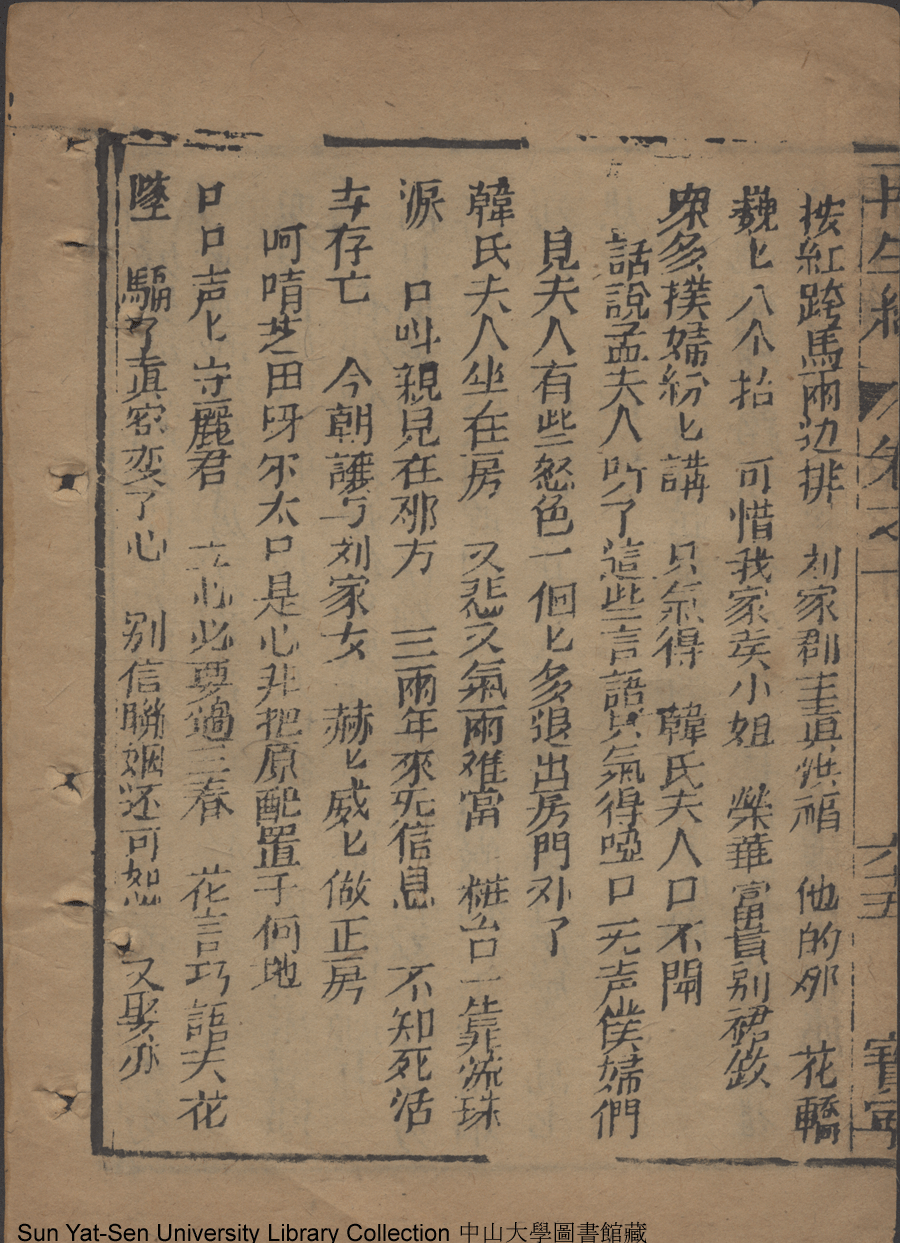 再生緣 卷之一 六十五 寶寧
按紅跨馬兩边排 刘家郡主真洪福 他的那 花轎
巍匕八个抬 可惜我家矣小姐 榮華富貴别裙釵
衆多撲婦紛匕講 只氣得 韓氏夫人口不開
話說孟夫人听了這些言語只氣得啞口无声僕婦們
見夫人有些怒色一個匕多退出房門外了
韓氏夫人坐在房 又悲又氣兩难當 粧台一靠流珠
淚 口叫親兒在那方 三兩年來无信息 不知死活
与存亡 今朝讓与刘家女 赫匕威匕做正房
呵唷芝田呀尔太口是心非把原配置于何地
口口声匕守麗君 立心必要過三春 花言巧語夫花
墜 騙了真容变了心 别信聯姻还可恕 又娶亦
Sun Yat-Sen University Library Collection 中山大學圖書館藏